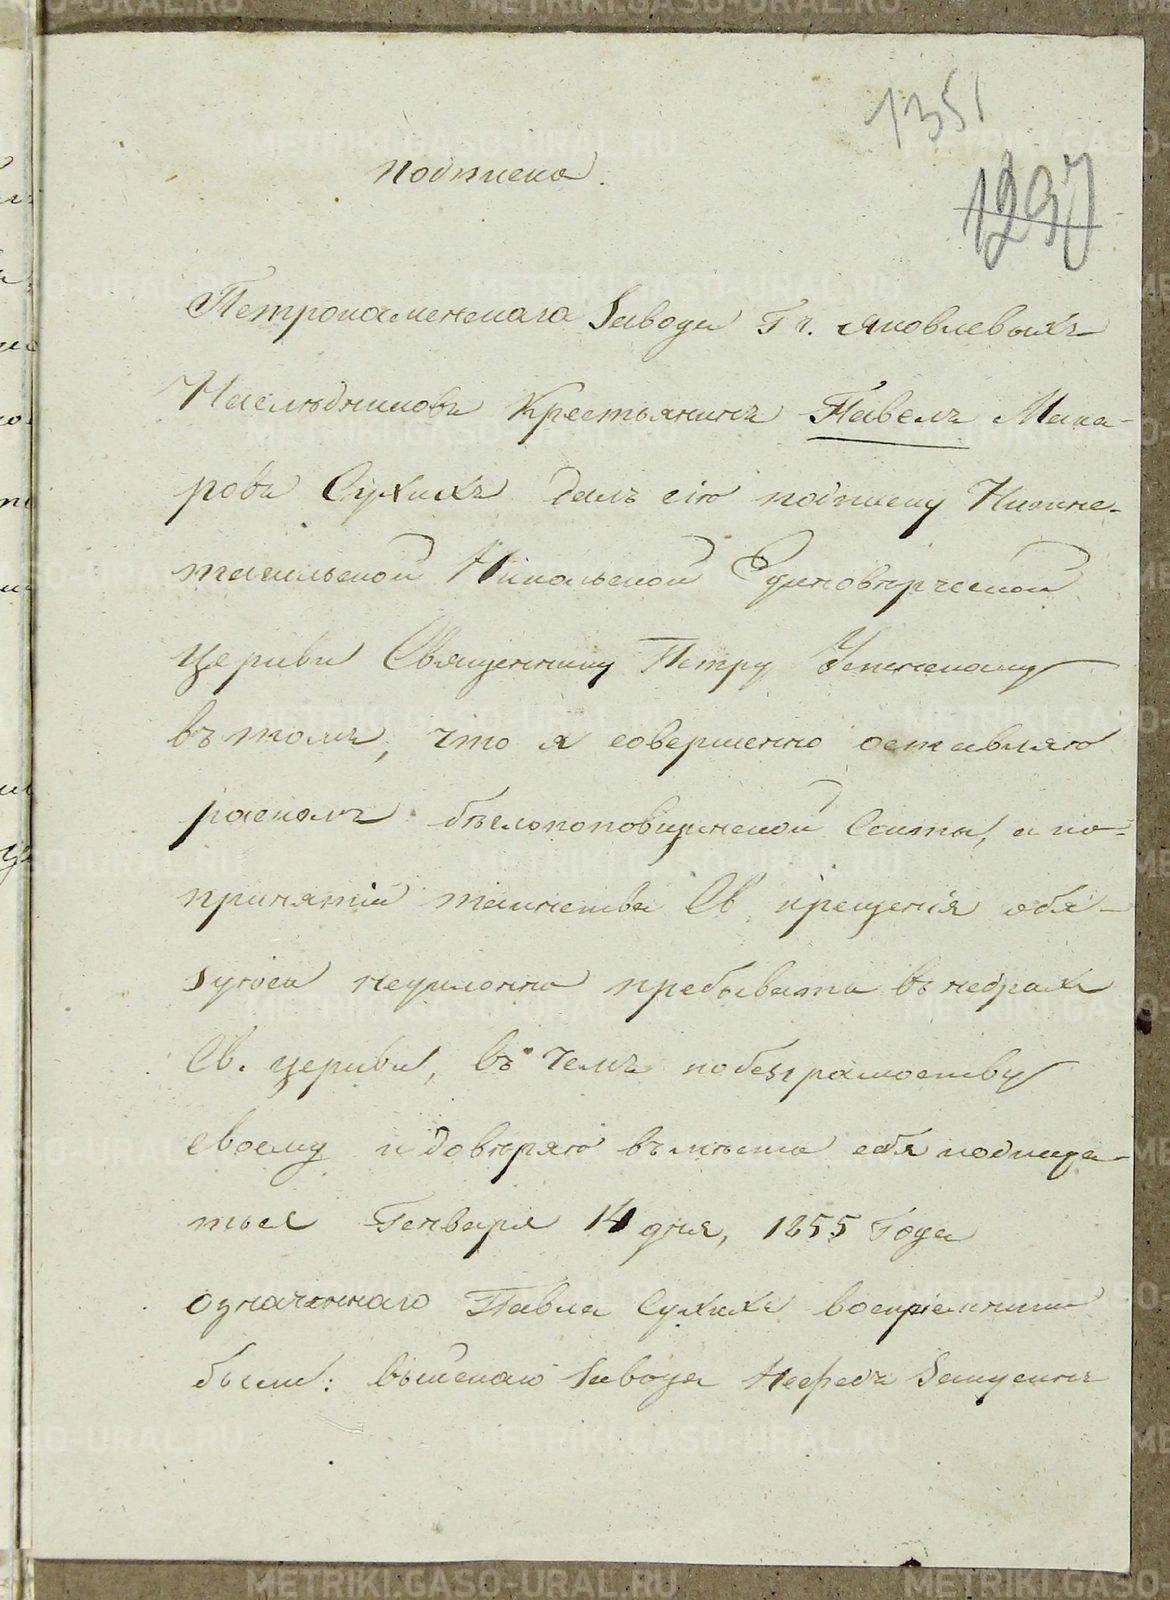 1351
1297
Подписка.
Петрокаменскаго Завода Гг. Яковлевыхъ
Наслѣдниковъ Крестьянинъ Павелъ Мака-
ровъ Сухихъ далъ сію подписку Нижне-
тагильской Никольской Единовѣрческой
церкви Священнику Петру
въ томъ, что я совершенно оставляю
расколъ бѣглопоповщинской Секты, и по
принятіи таинства Св. крещенія обя-
зуюсь неуклонно пребывать въ недрахъ
Св. церкви, въ чемъ по безграмотству
своему и довѣряю въ мѣсто себя подписа-
ться Генваря 14 дня, 1855 Года
Означеннаго Павла Сухихъ воспріемники
были: вышескаго Завода
METRIKI.GASO-URAL.RU